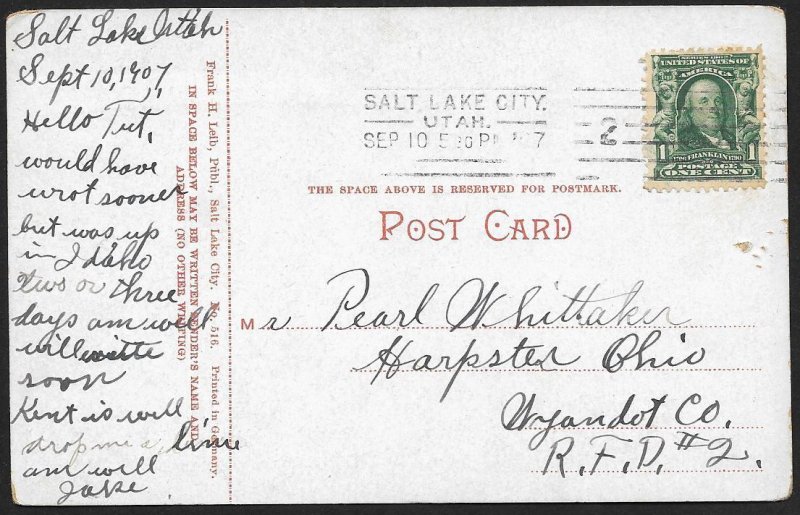 Salt Lake Utah
Sept 10, 1907,
Hello Tut,
would have
wrot sooner
but was up
in Idaho
two or three
days am well
will write
soon
Kent is will
drop me a line
am will
Jake
Frank H. Leib, Publ., Salt Lake City. No. 516. Printed in Germany.
IN SPACE BELOW MAY BE WRITTEN SENDER'S NAME AND
ADDRESS (NO OTHER WRITING)
SALT LAKE CITY.
UTAH.
SEP 10 5 30 PM
2
SERIES 1902
UNITED STATES OF
AMERICA
1 1706 FRANKLIN 1790 1
POSTAGE
ONE CENT
THE SPACE ABOVE IS RESERVED FOR POSTMARK.
POST CARD
Mr Pearl Whittaker
Harpster Ohio
Wyandot Co.
R.F.D. #2.